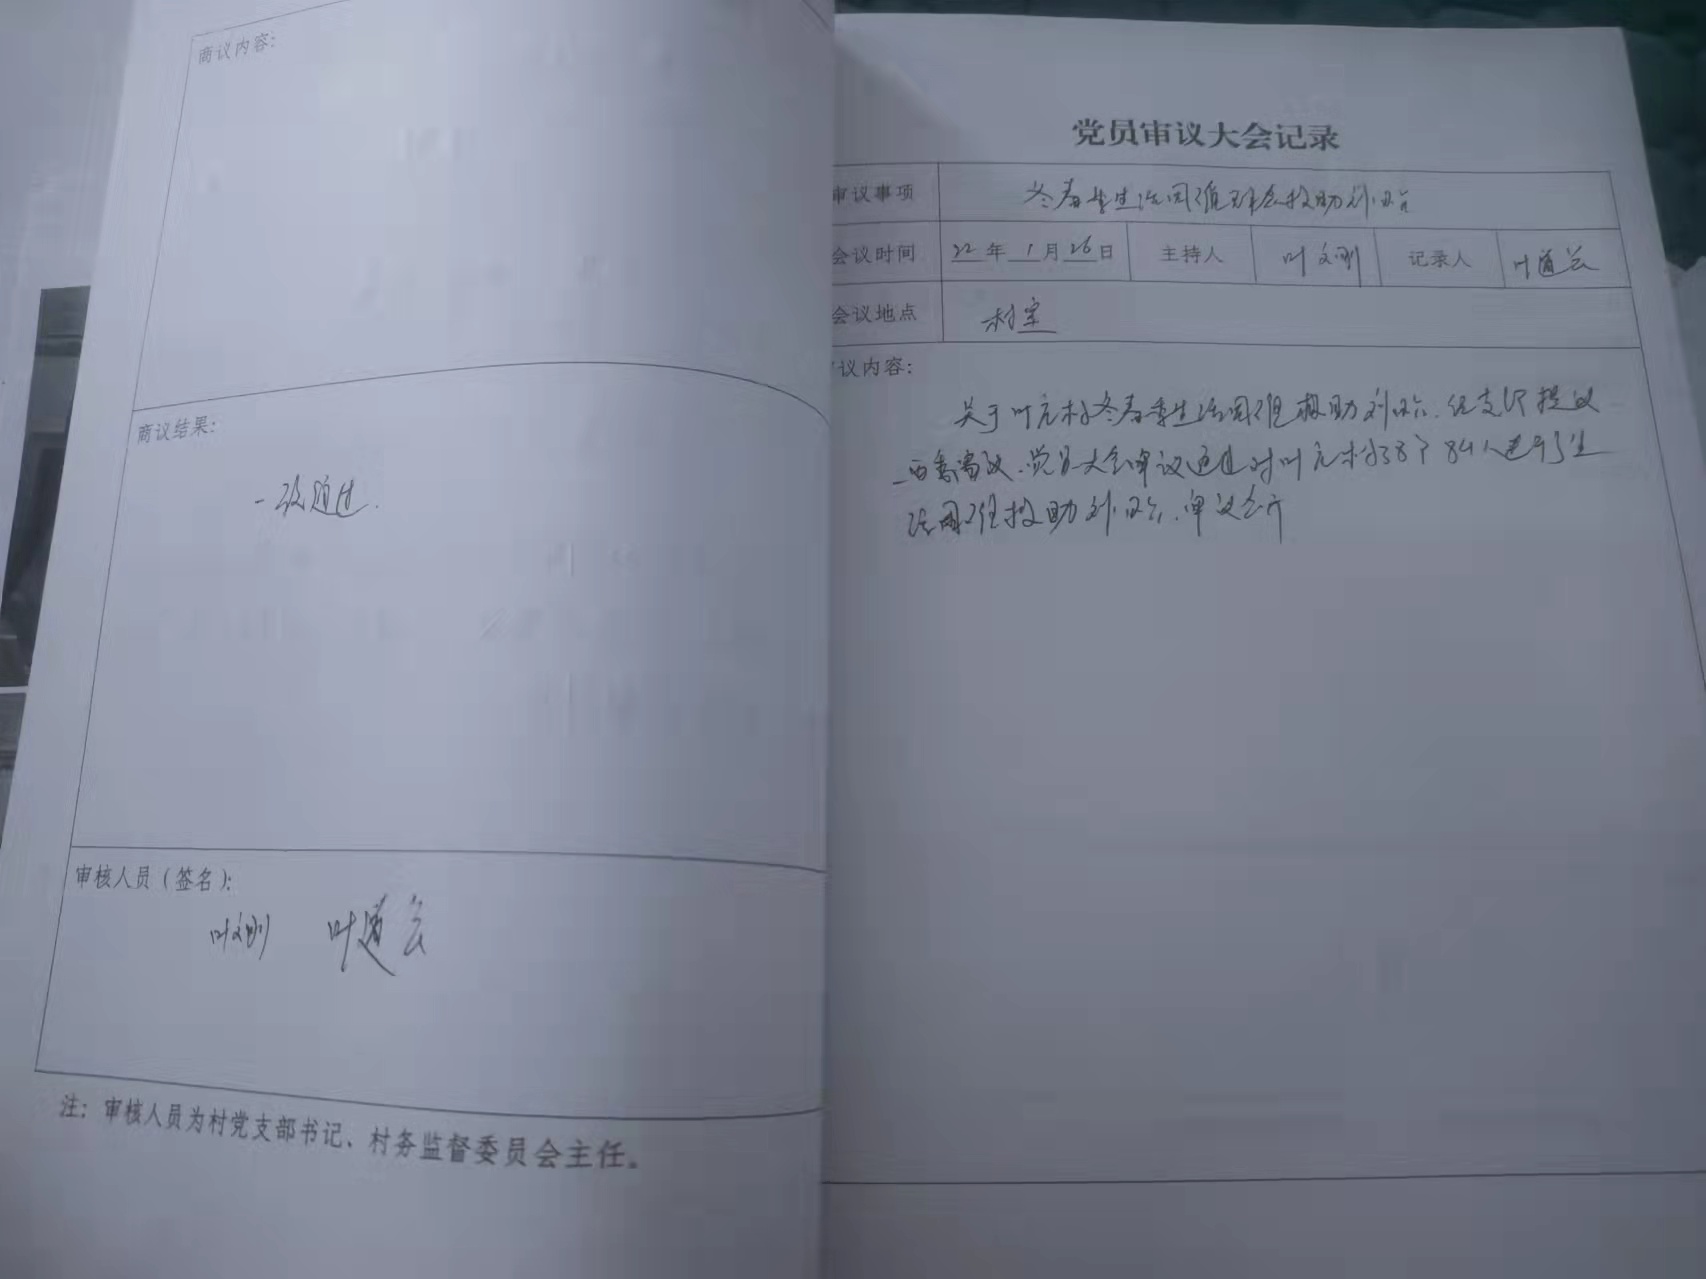 商议内容:
商议结果:
一致通过.
审核人员（签名）:
叶文刚 叶道会
注: 审核人员为村党支部书记、村务监督委员会主任。
党员审议大会记录
审议事项 冬春季生活困难群众救助对象
会议时间 22年1月26日 主持人 叶文刚 记录人 叶道会
会议地点 村室
议内容:
关于叶庄村冬春季生活困难救助对象.经支部提议
两委商议.党员大会审议通过对叶庄村38户84人进行生
活困难救助对象.审议公开